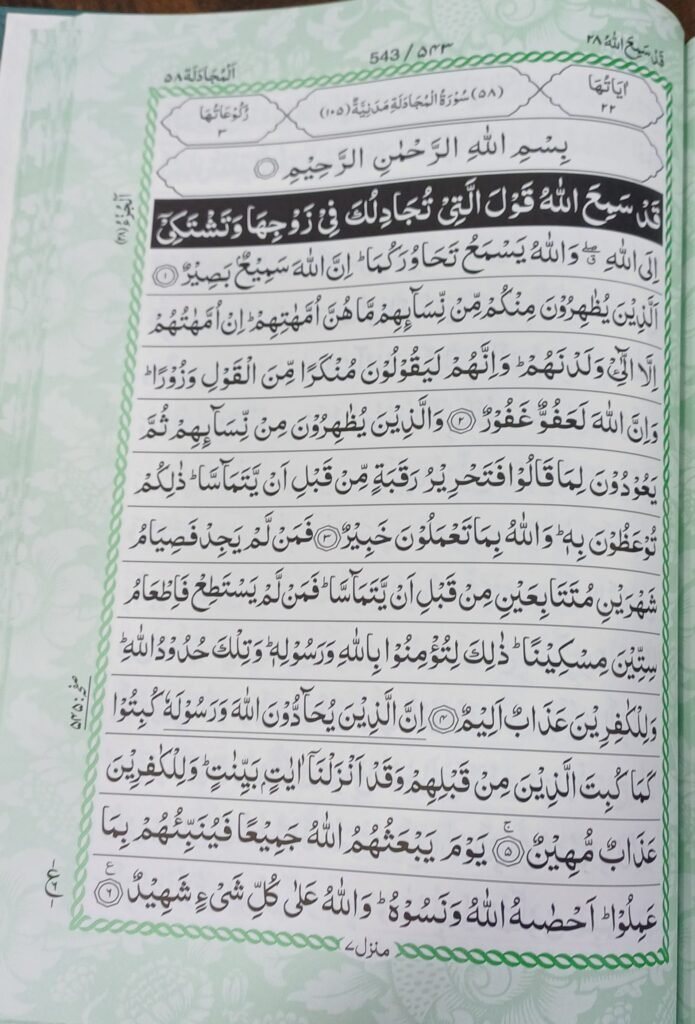 قَدْ سَمِعَ اللّٰهُ ٢٨
543 / ۵۴۳
اَلْمُجَادَلَة ٥٨
اٰيَاتُهَا ٢٢
(٥٨) سُوْرَةُ الْمُجَادَلَةِ مَدَنِيَّةٌ (١٠٥)
رُكُوْعَاتُهَا ٣
بِسْمِ اللّٰهِ الرَّحْمٰنِ الرَّحِيْمِ
قَدْ سَمِعَ اللّٰهُ قَوْلَ الَّتِيْ تُجَادِلُكَ فِيْ زَوْجِهَا وَتَشْتَكِيْٓ
اِلَى اللّٰهِ ۖ وَاللّٰهُ يَسْمَعُ تَحَاوُرَكُمَا ؕ اِنَّ اللّٰهَ سَمِيْعٌۢ بَصِيْرٌ ﴿١﴾
اَلَّذِيْنَ يُظٰهِرُوْنَ مِنْكُمْ مِّنْ نِّسَآىِٕهِمْ مَّا هُنَّ اُمَّهٰتِهِمْ ؕ اِنْ اُمَّهٰتُهُمْ
اِلَّا الّٰٓـِٔيْ وَلَدْنَهُمْ ؕ وَاِنَّهُمْ لَيَقُوْلُوْنَ مُنْكَرًا مِّنَ الْقَوْلِ وَزُوْرًا ؕ
وَاِنَّ اللّٰهَ لَعَفُوٌّ غَفُوْرٌ ﴿٢﴾ وَالَّذِيْنَ يُظٰهِرُوْنَ مِنْ نِّسَآىِٕهِمْ ثُمَّ
يَعُوْدُوْنَ لِمَا قَالُوْا فَتَحْرِيْرُ رَقَبَةٍ مِّنْ قَبْلِ اَنْ يَّتَمَآسَّا ؕ ذٰلِكُمْ
تُوْعَظُوْنَ بِهٖ ؕ وَاللّٰهُ بِمَا تَعْمَلُوْنَ خَبِيْرٌ ﴿٣﴾ فَمَنْ لَّمْ يَجِدْ فَصِيَامُ
شَهْرَيْنِ مُتَتَابِعَيْنِ مِنْ قَبْلِ اَنْ يَّتَمَآسَّا ؕ فَمَنْ لَّمْ يَسْتَطِعْ فَاِطْعَامُ
سِتِّيْنَ مِسْكِيْنًا ؕ ذٰلِكَ لِتُؤْمِنُوْا بِاللّٰهِ وَرَسُوْلِهٖ ؕ وَتِلْكَ حُدُوْدُ اللّٰهِ ؕ
وَلِلْكٰفِرِيْنَ عَذَابٌ اَلِيْمٌ ﴿٤﴾ اِنَّ الَّذِيْنَ يُحَآدُّوْنَ اللّٰهَ وَرَسُوْلَهٗ كُبِتُوْا
كَمَا كُبِتَ الَّذِيْنَ مِنْ قَبْلِهِمْ وَقَدْ اَنْزَلْنَآ اٰيٰتٍۭ بَيِّنٰتٍ ؕ وَلِلْكٰفِرِيْنَ
عَذَابٌ مُّهِيْنٌ ﴿٥﴾ۚ يَوْمَ يَبْعَثُهُمُ اللّٰهُ جَمِيْعًا فَيُنَبِّئُهُمْ بِمَا
عَمِلُوْا ؕ اَحْصٰىهُ اللّٰهُ وَنَسُوْهُ ؕ وَاللّٰهُ عَلٰى كُلِّ شَيْءٍ شَهِيْدٌ ﴿٦﴾ع
منزل ٧
اَلْجُزْءُ (٢٨)
صفحہ: ۵۴۵